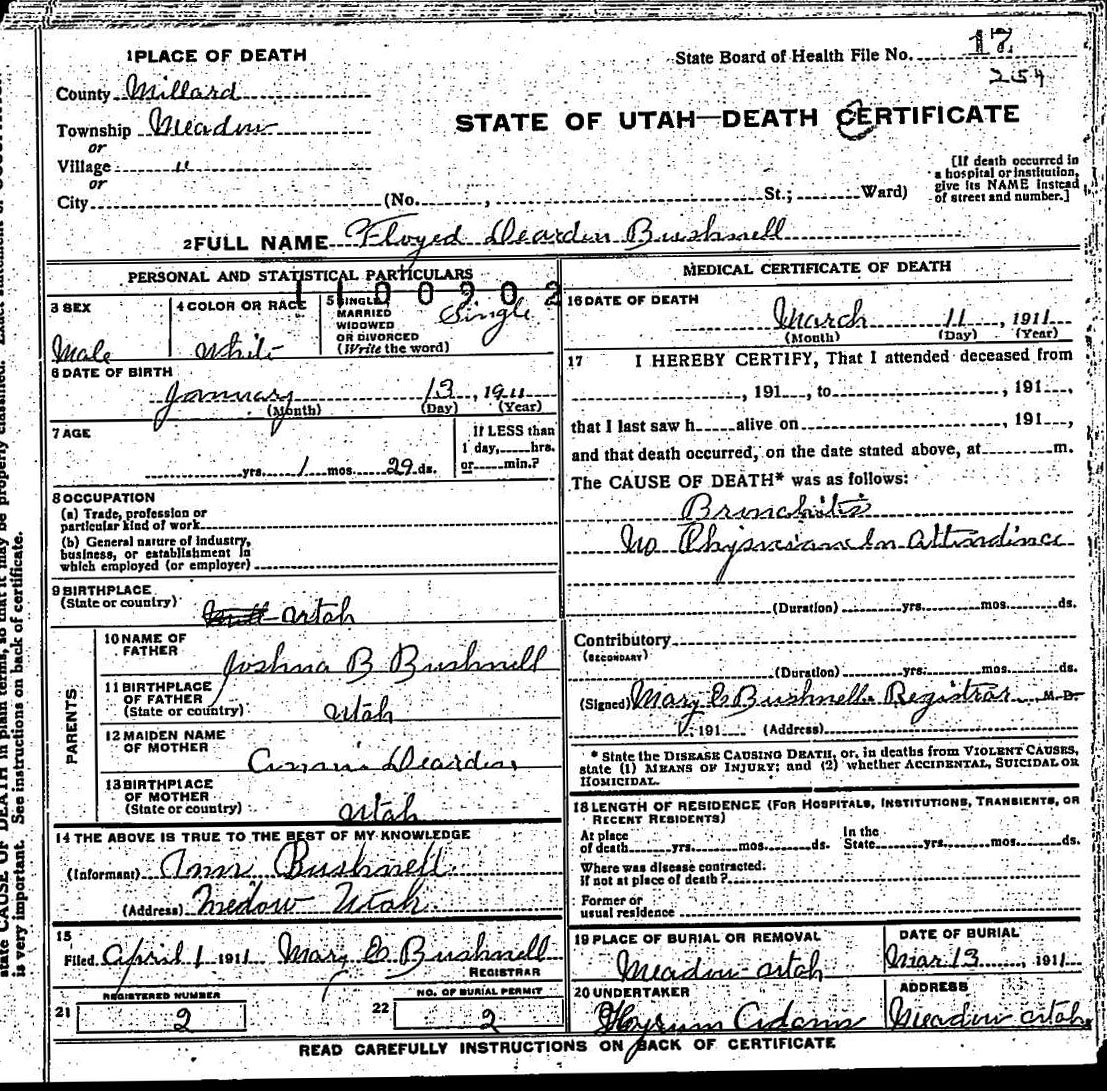 1 PLACE OF DEATH
State Board of Health File No. 17
254
County Millard
Township Meadow
or
Village "
or
City (No. , St.; Ward)
STATE OF UTAH—DEATH CERTIFICATE
[If death occurred in
a hospital or institution,
give its NAME instead
of street and number.]
2 FULL NAME Floyed Dearden Bushnell
PERSONAL AND STATISTICAL PARTICULARS
1100902
3 SEX
Male
4 COLOR OR RACE
White
5 SINGLE,
MARRIED
WIDOWED
OR DIVORCED
(Write the word)
Single
6 DATE OF BIRTH
January 13, 1911
(Month) (Day) (Year)
7 AGE
yrs. 1 mos. 29 ds.
If LESS than
1 day, hrs.
or min.?
8 OCCUPATION
(a) Trade, profession or
particular kind of work
(b) General nature of industry,
business, or establishment in
which employed (or employer)
9 BIRTHPLACE
(State or country)
Utah
PARENTS
10 NAME OF
FATHER
Joshua B Bushnell
11 BIRTHPLACE
OF FATHER
(State or country)
Utah
12 MAIDEN NAME
OF MOTHER
Dearden
13 BIRTHPLACE
OF MOTHER
(State or country)
Utah
14 THE ABOVE IS TRUE TO THE BEST OF MY KNOWLEDGE
(Informant) Ann Bushnell
(Address) Medow Utah
15
Filed April 1 1911 Mary E Bushnell
REGISTRAR
REGISTERED NUMBER
21 2
NO. OF BURIAL PERMIT
22 2
MEDICAL CERTIFICATE OF DEATH
16 DATE OF DEATH
March 11, 1911
(Month) (Day) (Year)
17 I HEREBY CERTIFY, That I attended deceased from
, 191 , to , 191 ,
that I last saw h alive on , 191 ,
and that death occurred, on the date stated above, at m.
The CAUSE OF DEATH* was as follows:
Brinchitis
No Physician In Attindince
(Duration) yrs. mos. ds.
Contributory
(SECONDARY)
(Duration) yrs. mos. ds.
(Signed) Mary E Bushnell Registrar M.D.
, 191 (Address)
* State the DISEASE CAUSING DEATH, or, in deaths from VIOLENT CAUSES,
state (1) MEANS OF INJURY; and (2) whether ACCIDENTAL, SUICIDAL OR
HOMICIDAL.
18 LENGTH OF RESIDENCE (FOR HOSPITALS, INSTITUTIONS, TRANSIENTS, OR
RECENT RESIDENTS)
At place
of death yrs. mos. ds.
In the
State yrs. mos. ds.
Where was disease contracted.
if not at place of death?
Former or
usual residence
19 PLACE OF BURIAL OR REMOVAL
Meadow Utah
DATE OF BURIAL
Mar 13, 1911
20 UNDERTAKER
Hyrum Adams
ADDRESS
Meadow Utah
READ CAREFULLY INSTRUCTIONS ON BACK OF CERTIFICATE
state CAUSE OF DEATH in plain terms, so that it may be properly classified.
is very important. See instructions on back of certificate.